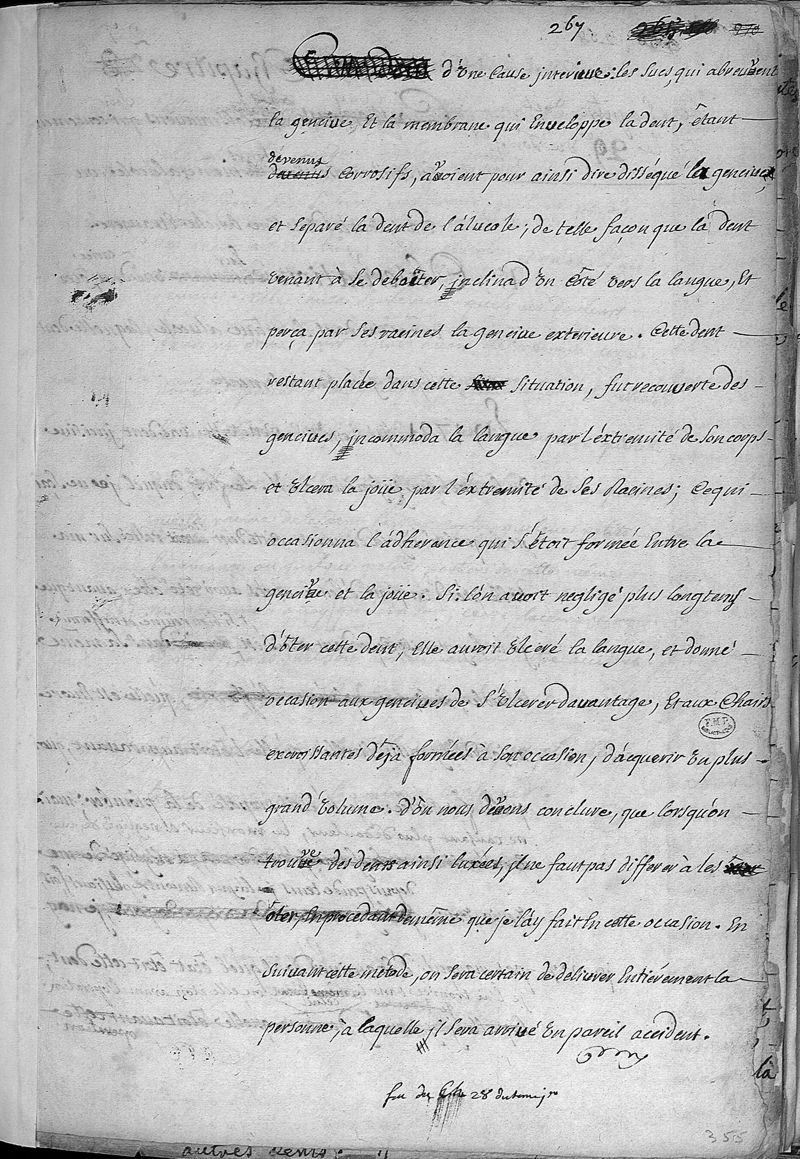 267 265 270
d'une Cause jnterieure : les Sucs, qui abreuvent
la gencive Et la membrane qui Enveloppe la dent, étant
devenus
Corrosifs, avoient pour ainsi dire disséqué la gencive,
et Separé la dent de l'alveole ; de telle façon que la dent
venant à se deboeter, jnclina d'un côté vers la langue, Et
perça par Ses racines la gencive exterieure. Cette dent
restant placée dans cette Situation, fut recouverte des
gencives, jncommoda la langue par l'éxtremité de Son corps
et Ulcera la joüe par l'éxtremité de Ses Racines ; Ce qui
occasionna l'ádherance qui S'étoit formée Entre la
gencive et la joüe. Si l'on avoit negligé plus longtems
d'ôter cette dent, Elle auroit Ulceré la langue, et donné
occasion aux gencives de S'Ulcerer davantage, Et aux Chairs
excroissantes déjà formées à Son occasion, d'acquerir un plus
grand Volume. d'où nous devons conclure, que lorsqu'on
trouve des dents ainsi luxées, jl ne faut pas differer à les
ôter, En procedant de même que je l'ay fait En cette occasion. En
Suivant cette métode, on Sera certain de delivrer Entiérement la
personne, à laquelle jl Sera arrivé Un pareil accident.
fin du Ch. 28 du tome jer
355
autres dents
la